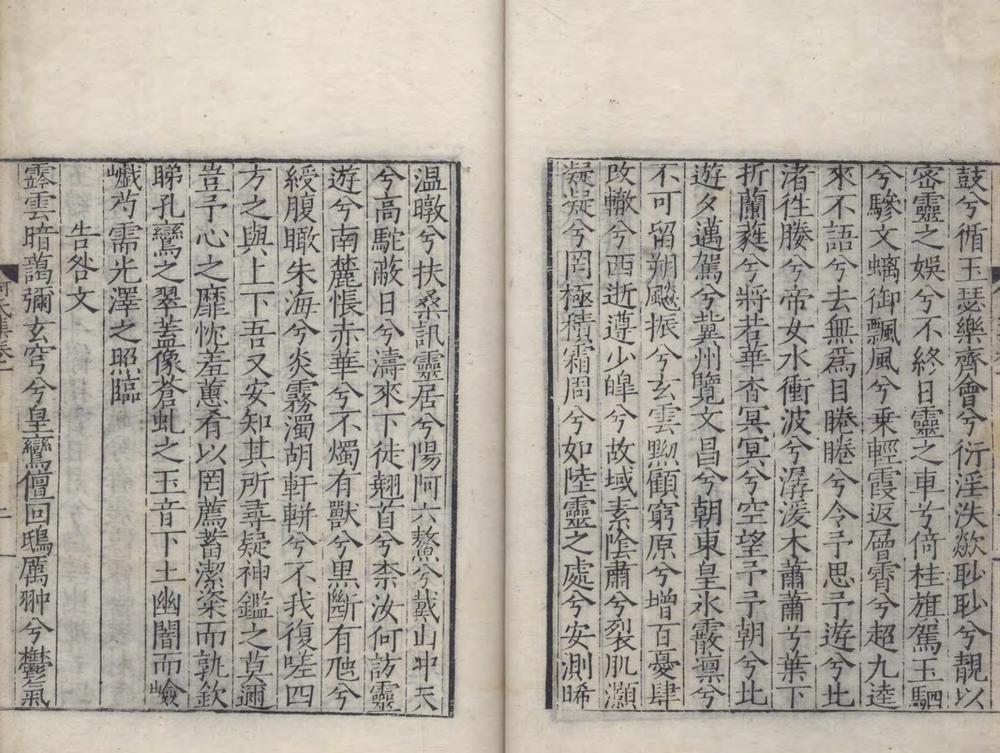 鼓兮循玉瑟樂齊會兮衍淫泆歘眇眇兮靚以
密靈之娛兮不終日靈之車兮倚桂旗駕玉駟
兮驂文螭御飄風兮乘輕霞返層霄兮超九逵
來不語兮去無爲目睠睠兮令予思予遊兮北
渚徃媵兮帝女水衝波兮潺湲木蕭蕭兮葉下
折蘭蕤兮將若華杳冥冥兮空望予予朝兮北
遊夕邁駕兮冀州覽文昌兮朝東皇氷霰凛兮
不可留朔飈振兮玄雲黝顧窮原兮增百憂肆
改轍兮西逝遵少皥兮故域素陰肅兮裂肌灝
凝凝兮罔極積霜周兮如陸靈之處兮安測晞
温暾兮扶桑訊靈居兮陽阿六鰲兮戴山冲天
兮高駝蔽日兮濤來下徒翹首兮柰汝何訪靈
遊兮南麓悵赤華兮不燭有獸兮黑斷有虺兮
綬腹瞰朱海兮炎霧濁胡軒輧兮不我復嗟四
方之與上下吾又安知其所尋疑神鑑之莫邇
豈予心之靡忱羞蕙肴以罔薦蓄潔粢而孰歆
睇孔鸞之翠蓋像蒼虬之玉音下土幽闇而嶮
巇芍需光澤之照臨
告咎文
霠雲暗藹彌玄穹兮皇鸞儃回鴟厲翀兮鬱氣